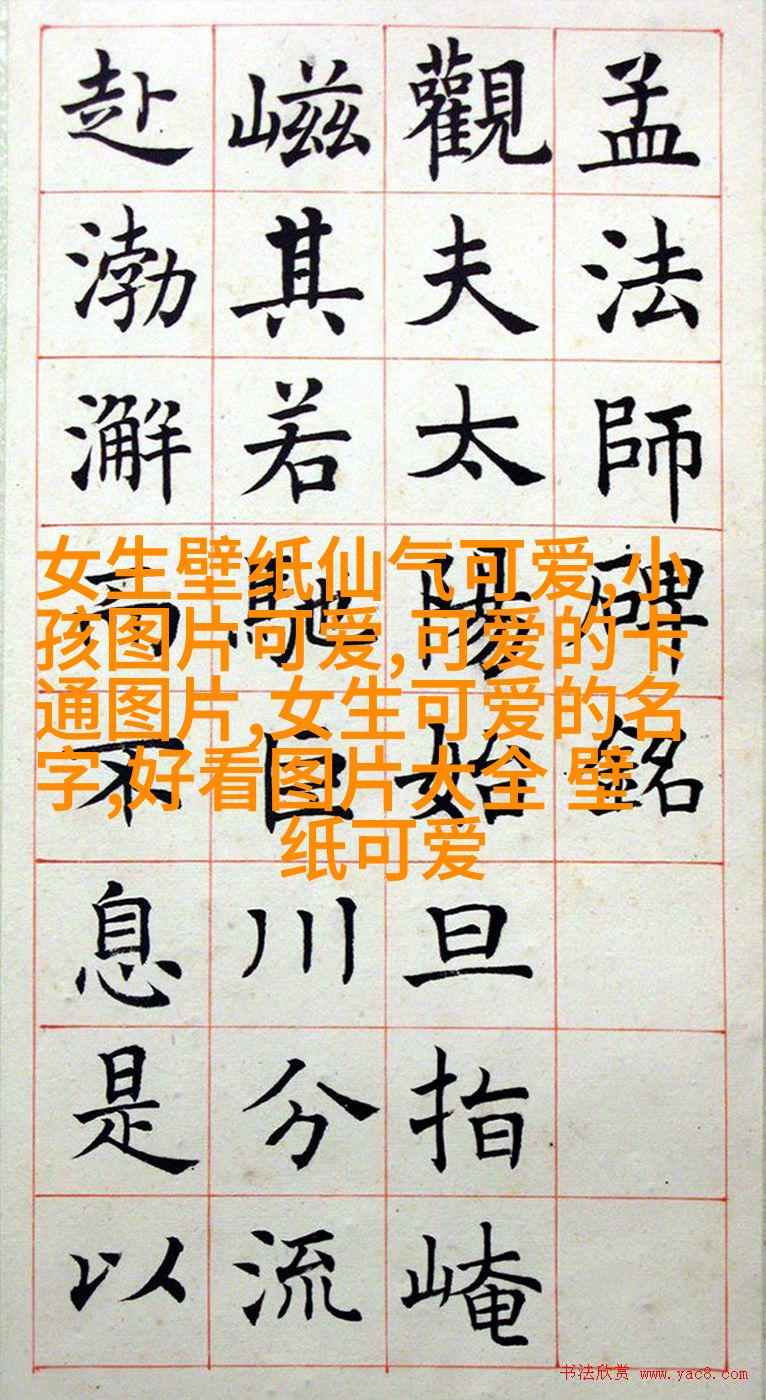 孟法師碑銘
觀夫太陽始旦指崦
嵫其若馳巨川分流
赴渤澥不息是以
女生壁纸仙气可爱,小
孩图片可爱,可爱的卡
通图片,女生可爱的名
字,好看图片大全 壁
纸可爱
书法欣赏 www.yac8.com